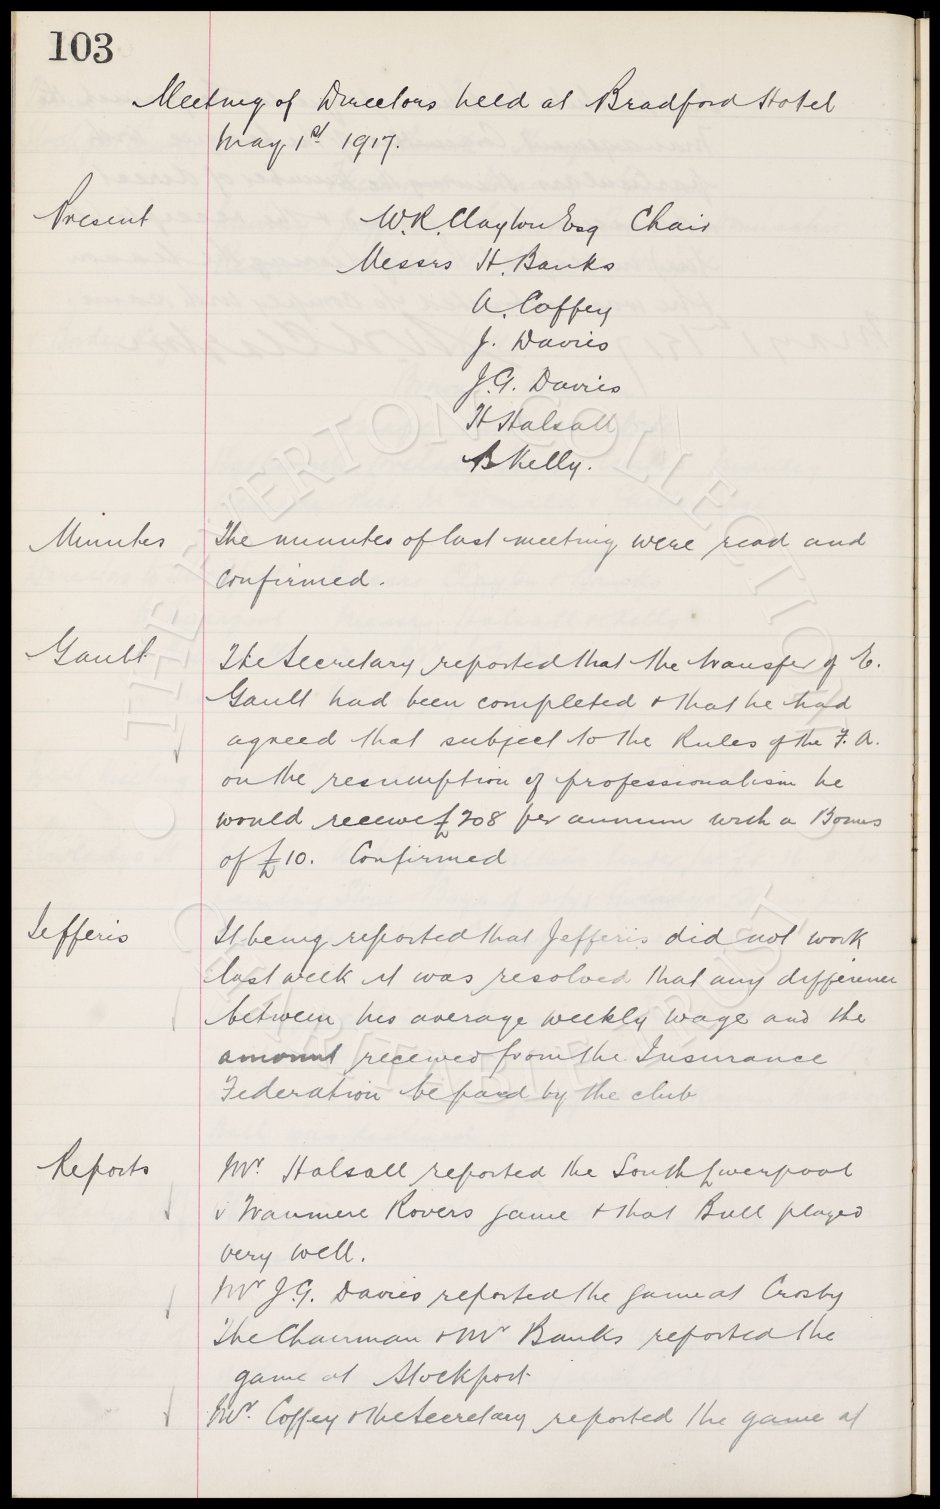 103
Meeting of Directors held at Bradford Hotel
May 1st 1917.
Present W.R. Clayton Esq Chair
Messrs H. Banks
A. Coffey
J. Davies
J.G. Davies
H Halsall
B Kelly.
Minutes The minutes of last meeting were read and
confirmed.
Gault The Secretary reported that the transfer of E.
Gault had been completed & that he had
agreed that subject to the Rules of the F.A.
on the resumption of professionalism he
would receive £208 per annum with a Bonus
of £10. Confirmed
Jefferis It being reported that Jefferis did not work
last week it was resolved that any difference
between his average weekly wage and the
amount received from the Insurance
Federation be paid by the club
Reports Mr. Halsall reported the South Liverpool
v Tranmere Rovers game & that Bull played
very well.
Mr J.G. Davies reported the game at Crosby
The Chairman & Mr Banks reported the
game at Stockport
Mr. Coffey & the Secretary reported the game at
THE EVERTON COLLECTION
CHARITABLE TRUST